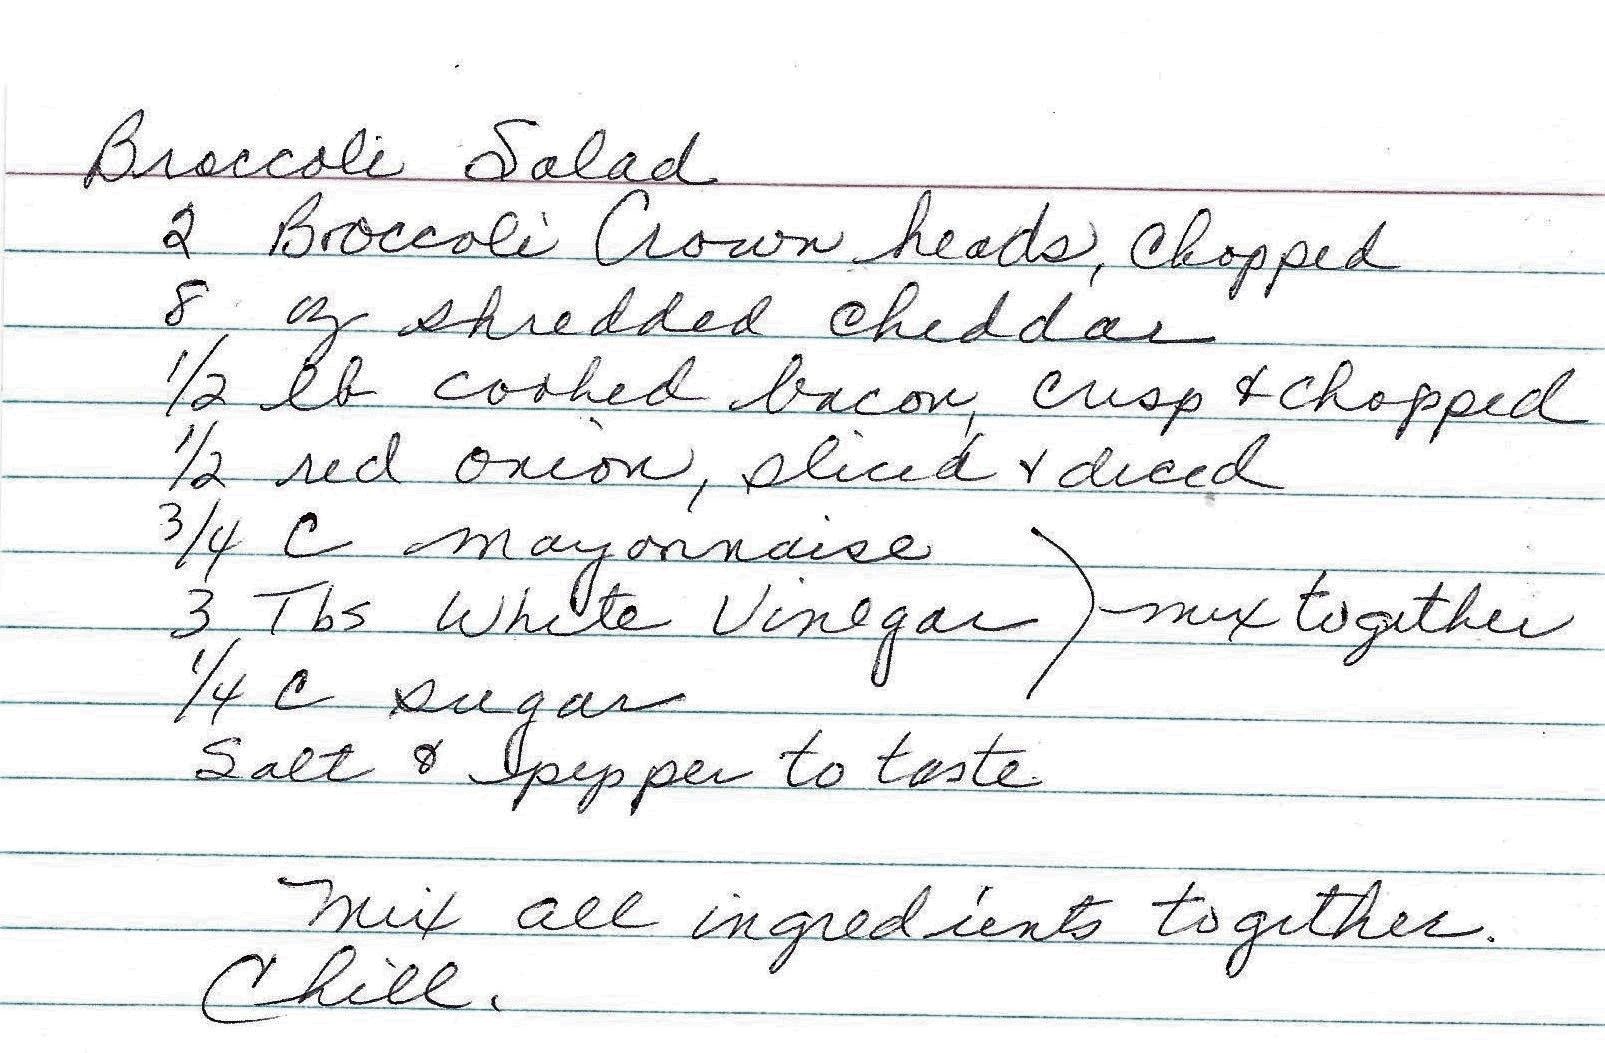 Broccoli Salad
2 Broccoli Crown heads, chopped
8 oz shredded cheddar
1/2 lb cooked bacon, crisp & chopped
1/2 red onion, sliced & diced
3/4 C mayonnaise
3 Tbs White Vinegar ) mix together
1/4 C sugar
Salt & pepper to taste.
Mix all ingredients together.
Chill.